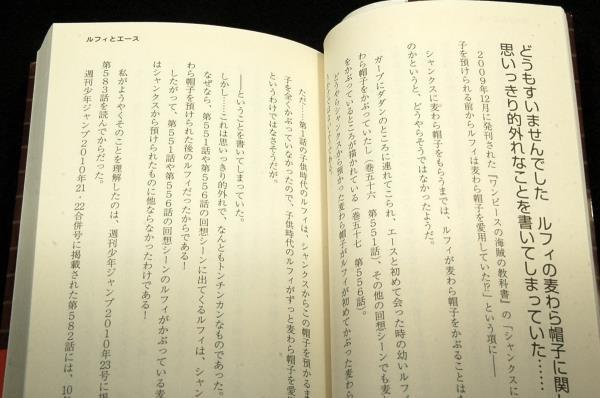 どうもすいませんでした　ルフィの麦わら帽子に関し
思いっきり的外れなことを書いてしまっていた……
2009年12月に発刊された『ワンピースの海賊の教科書』の「シャンクスに
子を預けられる前からルフィは麦わら帽子を愛用していた!?」という項に──
シャンクスに麦わら帽子をもらうまでは、ルフィが麦わら帽子をかぶることはな
のかというと、どうやらそうではなかったようだ。
ガープにダダンのところに連れてこられ、エースと初めて会った時の幼いルフィ
わら帽子をかぶっていたし（巻五十六　第551話）、その他の回想シーンでも麦わ
をかぶっているところが描かれている（巻五十七　第556話）。
どうやらシャンクスから預かった麦わら帽子がルフィが初めてかぶった麦わら
ルフィとエース
ただ…第1話の子供時代のルフィは、シャンクスからこの帽子を預かるま
子を全くかぶっていなかったので、子供時代のルフィがずっと麦わら帽子を愛
というわけではなさそうだが。
──ということを書いてしまっていた。
しかし……これは思いっきり的外れで、なんともトンチンカンなものであった。
なぜなら、第551話や第556話の回想シーンに出てくるルフィは、シャン
わら帽子を預けられた後のルフィだったからである！
したがって、第551話や第556話の回想シーンのルフィがかぶっている麦
はシャンクスから預けられたものに他ならなかったわけである！
私がようやくそのことを理解したのは、週刊少年ジャンプ2010年23号に掲
第583話を読んでからだった。
週刊少年ジャンプ2010年21・22合併号に掲載された第582話には、10年